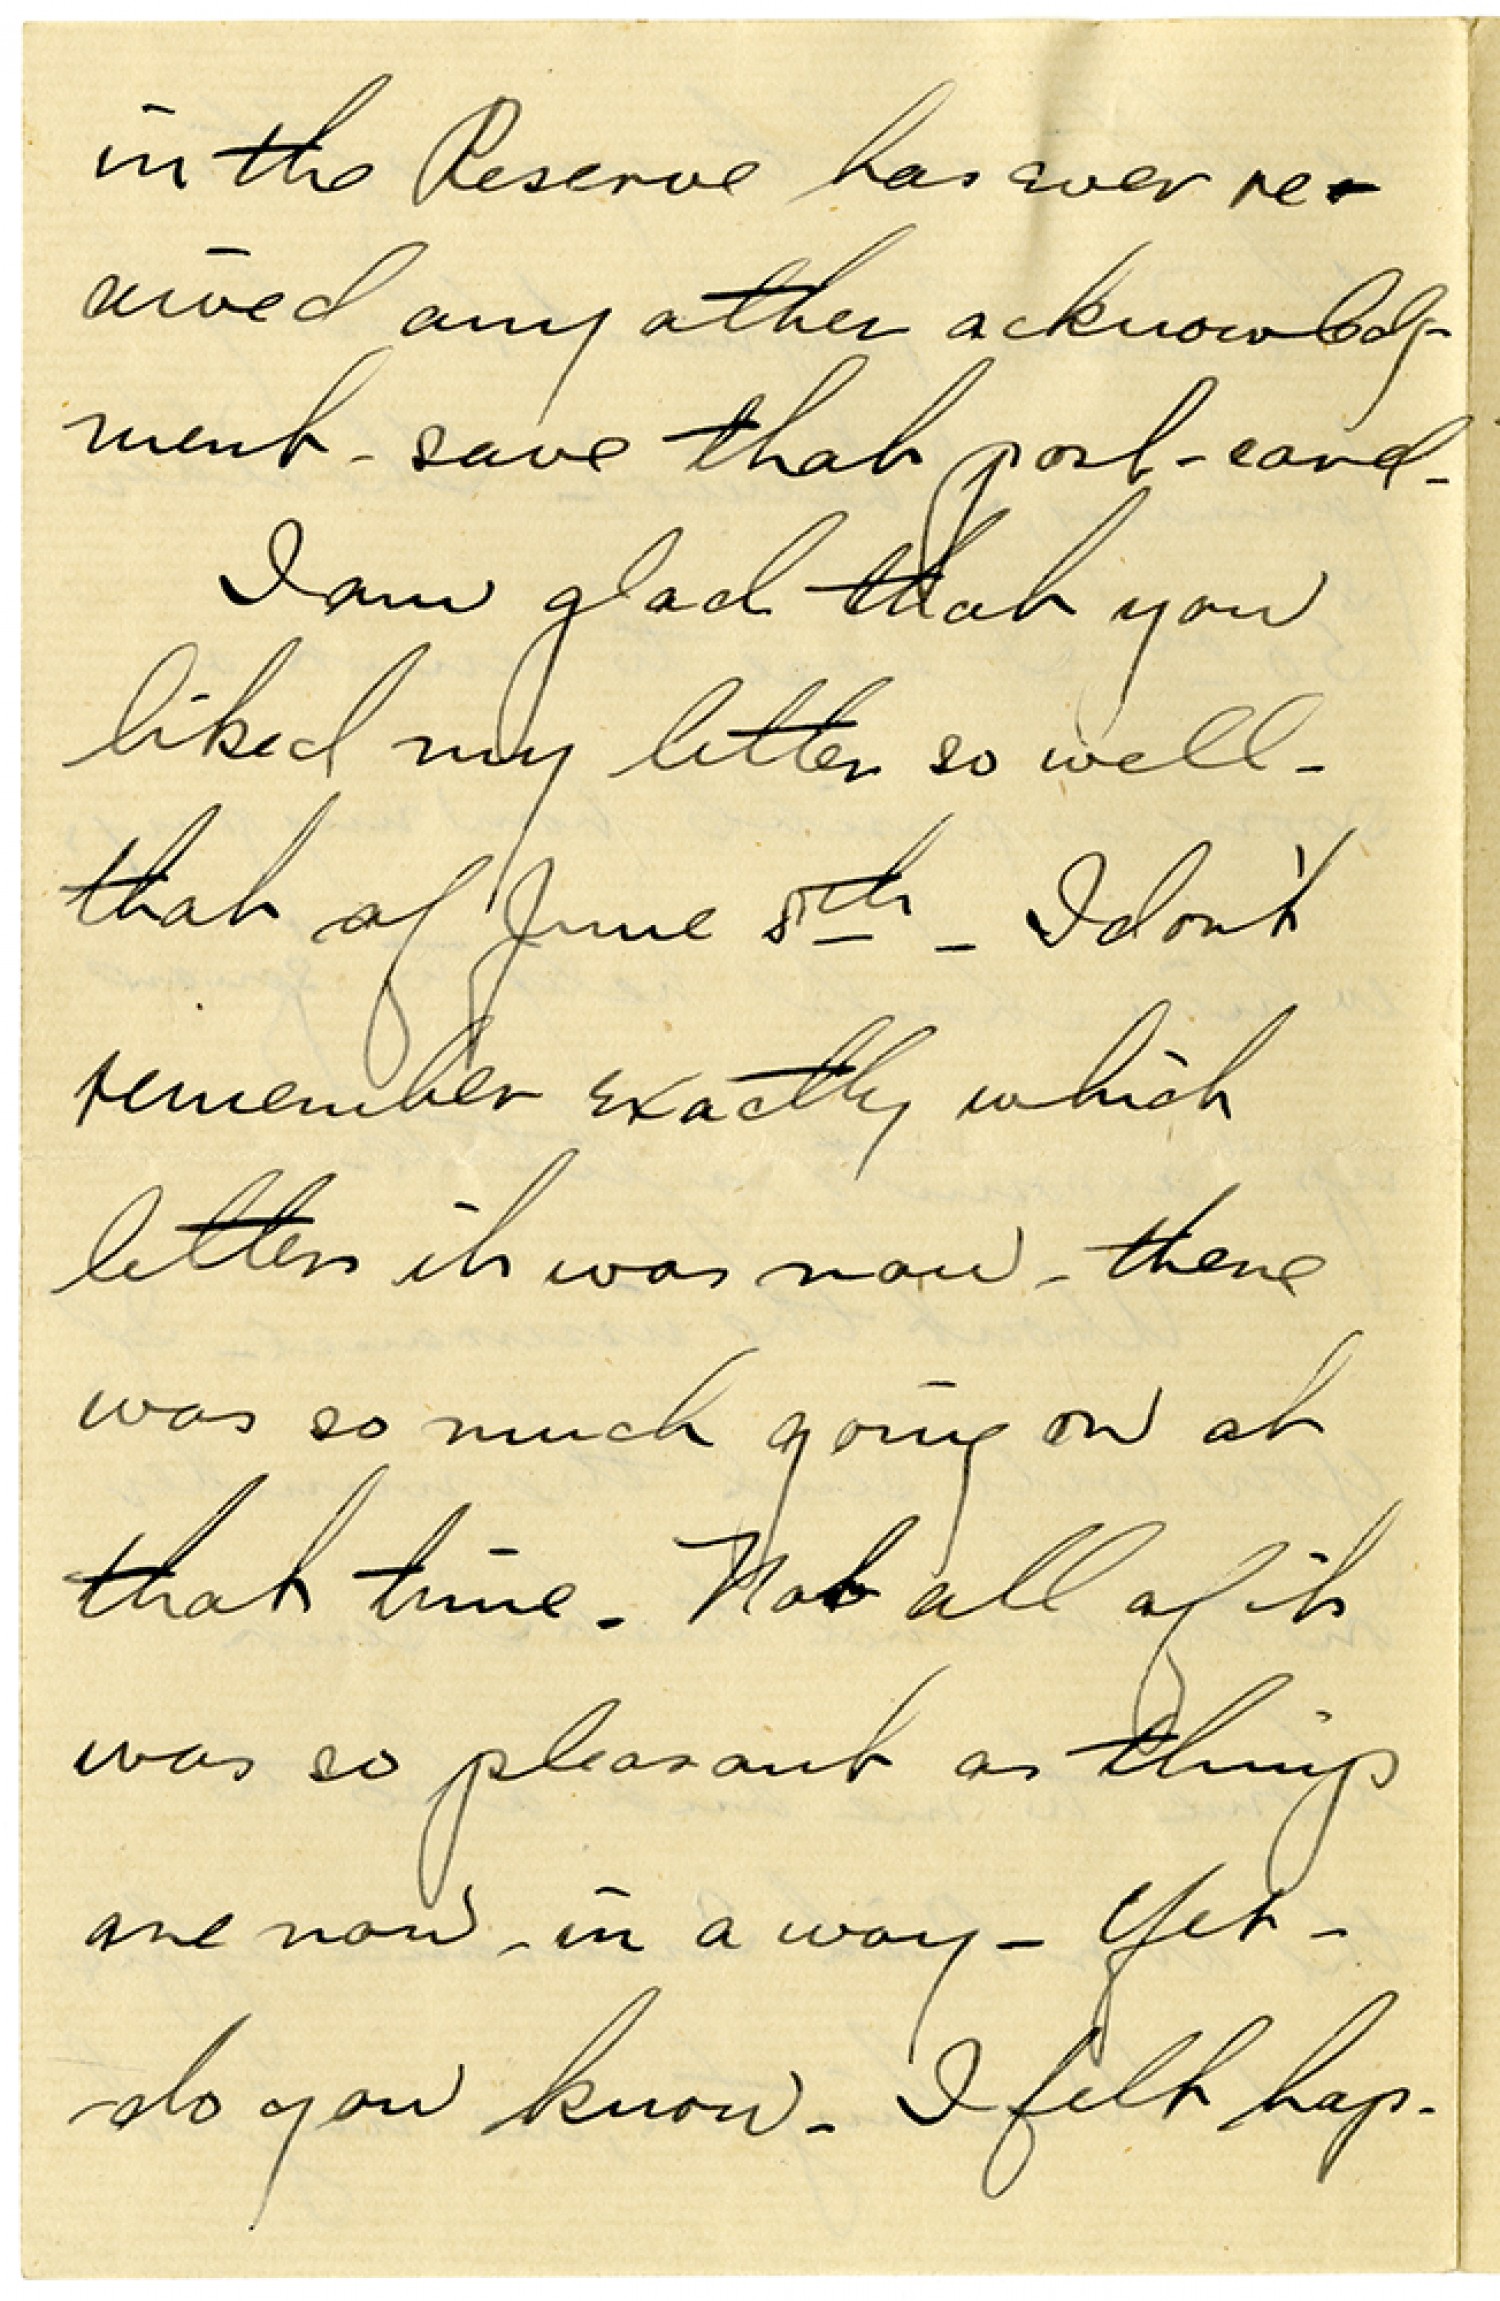 in the Reserve has ever re-
ceived any other acknowledg-
ment - save that post-card -
I am glad that you
liked my letter so well -
that of June 8th - I don't
remember exactly which
letter it was now - there
was so much going on at
that time. Not all of it
was so pleasant as things
are now - in a way - Yet -
do you know - I felt hap-